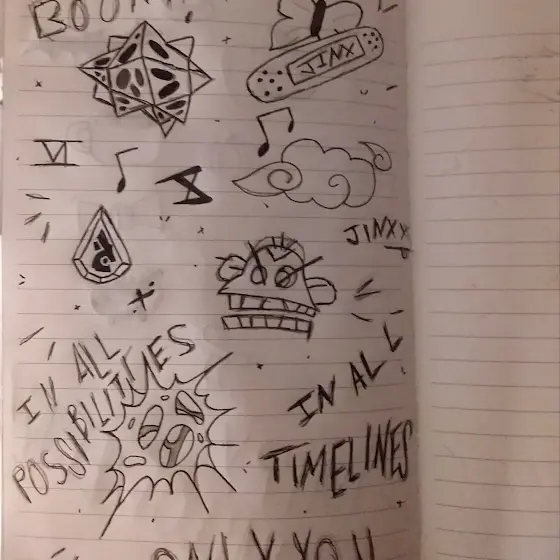 BOOM!
JINX
VI
JINXX
IN ALL
POSSIBILITIES
IN ALL
TIMELINES
ONLY YOU